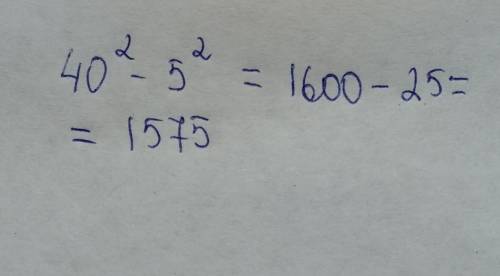 40² - 5² = 1600 - 25 =
= 1575